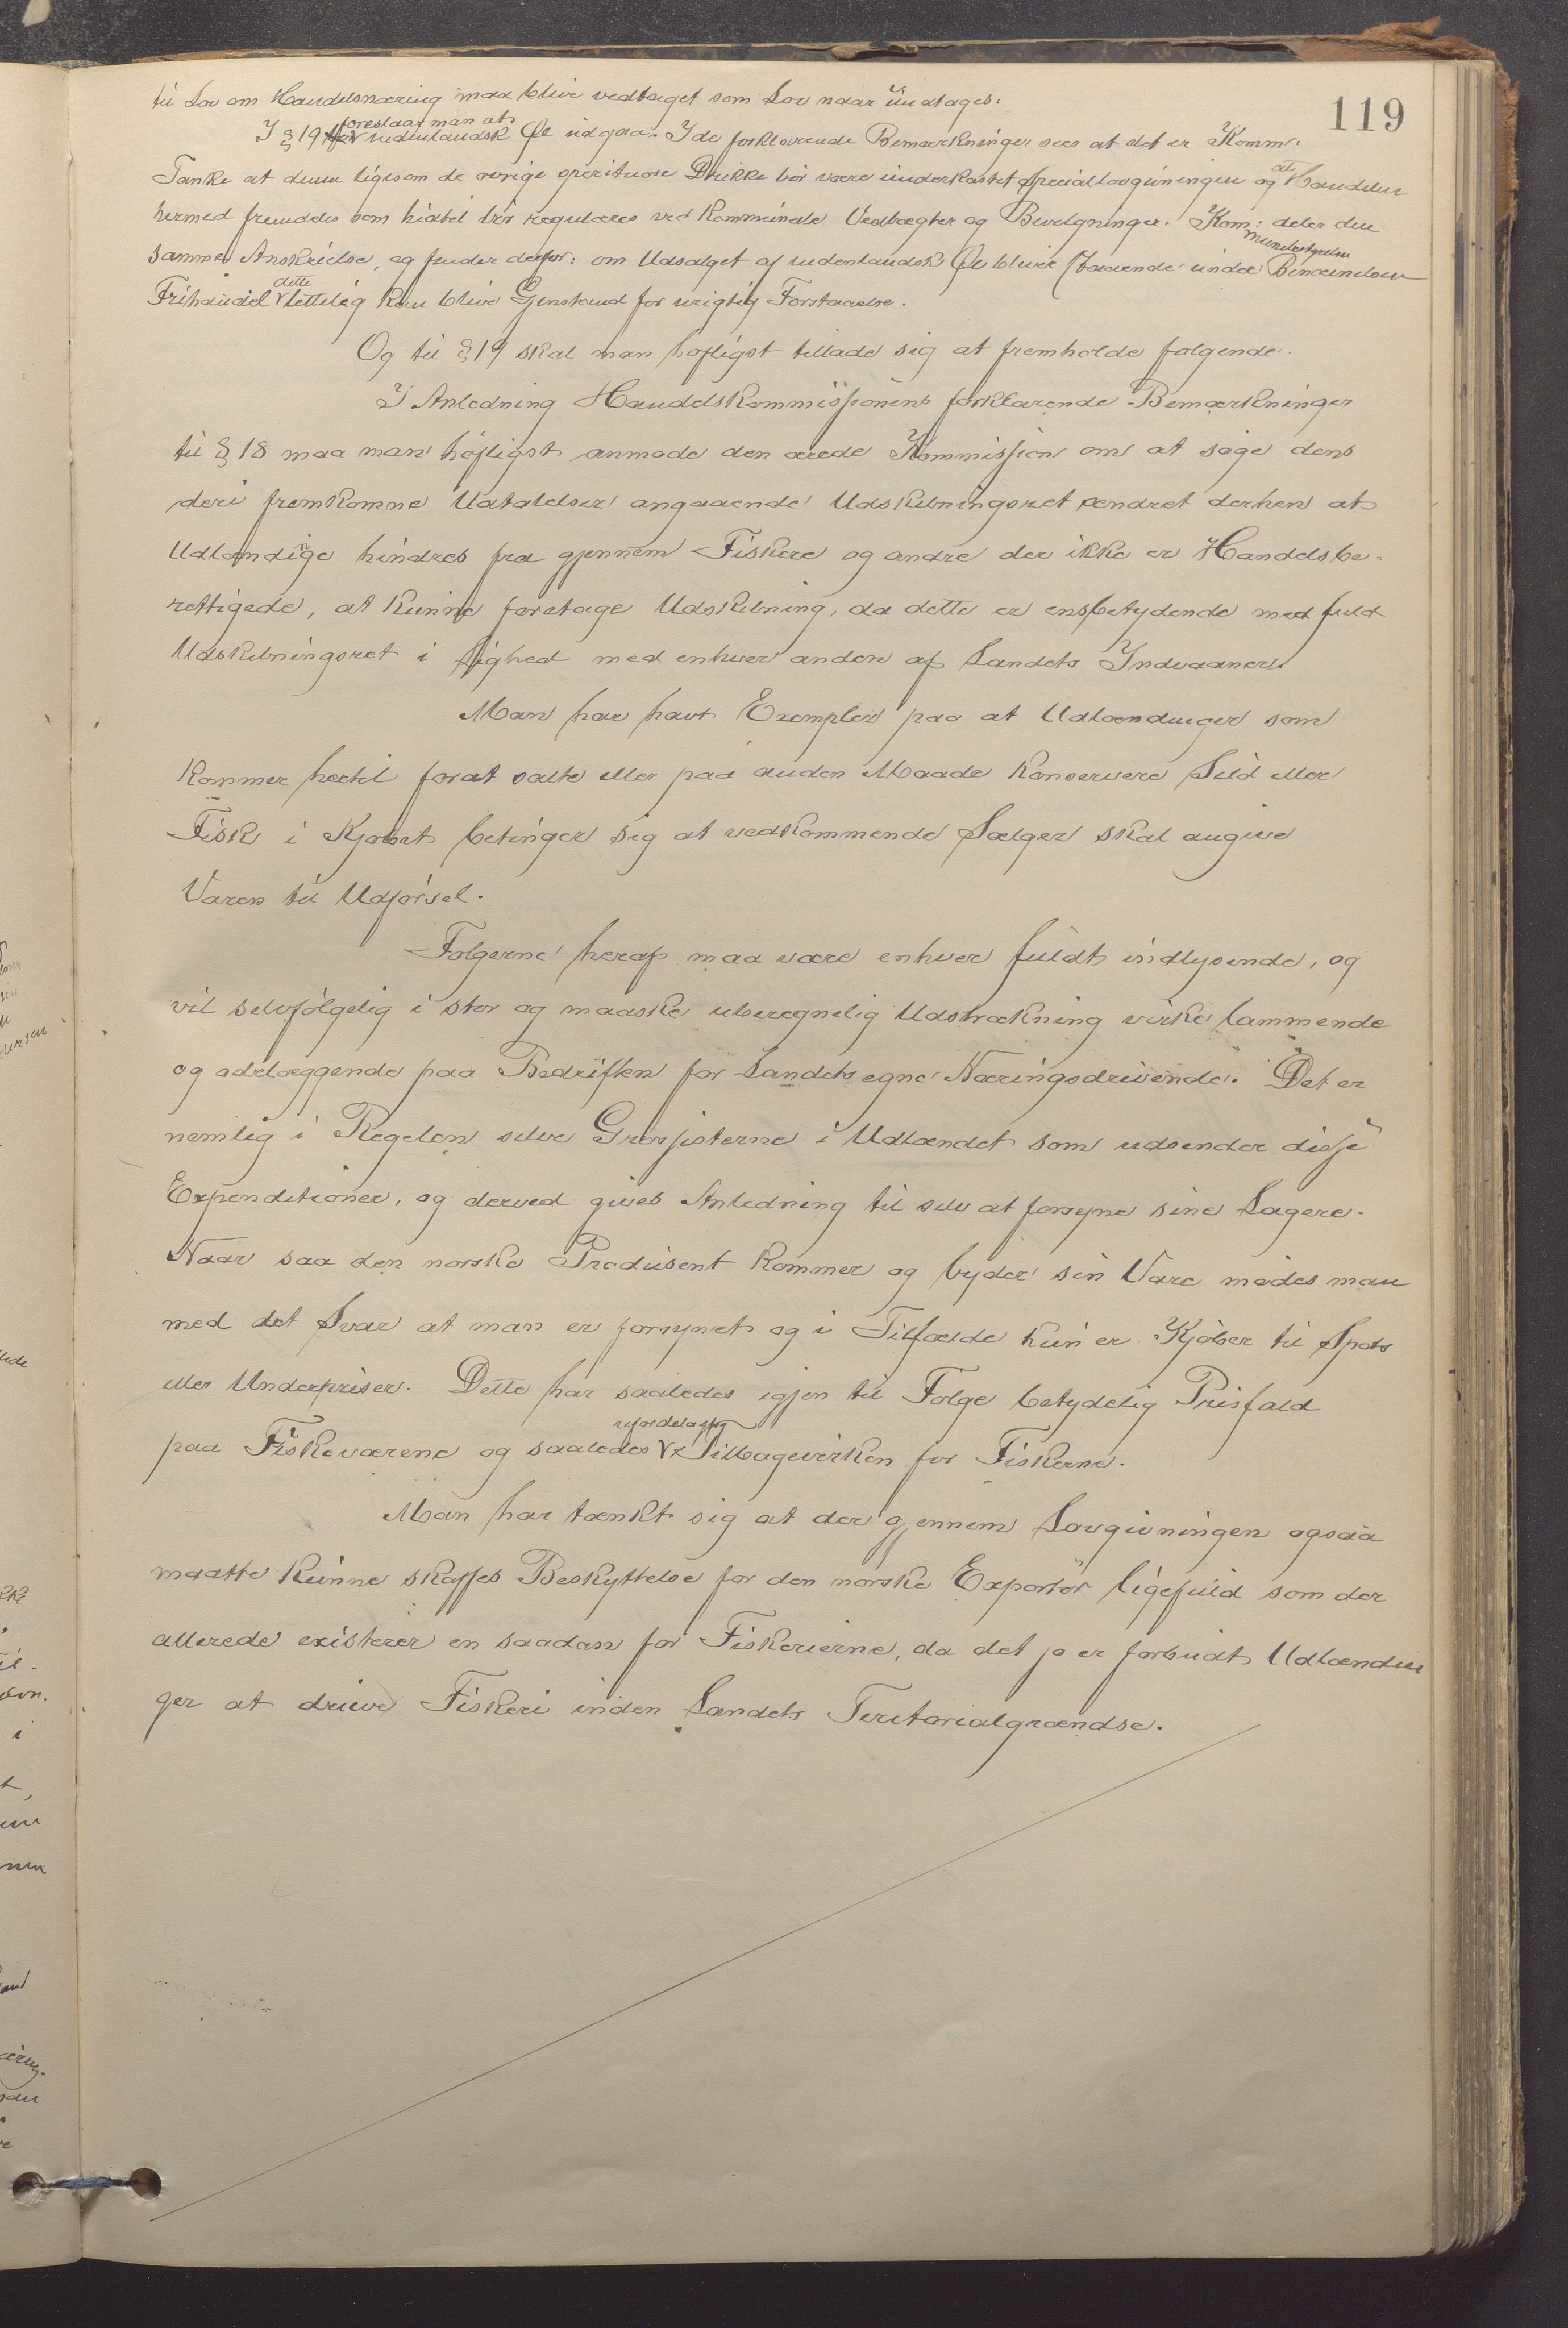 119
til Lov om Handelsnæring maa blive vedtaget som Lov naar undtages:
I § 19 foreslaar man at indenlandsk Øl udgaa. I de forklarende Bemærkninger sees at det er Komm:
Tanke at denne ligesom de øvrige spirituose Drikke bör være underkastet Speciallovgivningen og at Handelen
hermed fremdeles som hidtil bör reguleres ved Kommunale Vedtægter og Bevilgninger. Kom: munebestyrelsen deler den
samme Anskuelse, og finder derfor: om Udsalget af indenlandsk Øl bliver staaende under Benævnelsen
Frihandel dette lettelig kan blive Gjenstand for urigtig Forstaaelse.
Og til § 19 skal man høfligst tillade sig at fremholde følgende.
I Anledning Handelskommissionens forklarende Bemærkninger
til § 18 maa man höfligst anmode den ærede Kommission om at søge dens
deri fremkomne Udtalelser angaaende Udskibningsret ændret derhen at
Udlændige hindres fra gjennem Fiskere og andre der ikke er Handelsbe-
rettigede, at kunne foretage Udskibning, da dette er ensbetydende med fuld
Udskibningsret i Lighed med enhver anden af Landets Indvaaner.
Man har havt Exempler paa at Udlændinger som
kommer hertil forat salte eller paa anden Maade konservere Sild eller
Fisk i Kjøbet betinger sig at vedkommende Sælger skal angive
Varen til Udførsel.
Følgerne heraf maa være enhver fuldt indlysende, og
vil selvfölgelig i stor og maaske uberegnelig Udstrækning virke lammende
og ødelæggende paa Bedriften for Landets egne Næringsdrivende. Det er
nemlig i Regelen selve Grossisterne i Udlandet som udsender disse
Expenditioner, og derved gives Anledning til selv at forsyne sine Lagere.
Naar saa den norske Produsent kommer og byder sin Vare mødes man
med det Svar at man er forsynet og i Tilfælde kun er Kjøber til Spots
eller Underpriser. Dette har saaledes igjen til Følge betydelig Prisfald
paa Fiskeværene og saaledes ufordelagtig Tilbagevirken for Fiskerne.
Man har tænkt sig at der gjennem Lovgivningen ogsaa
maatte kunne skaffes Beskyttelse for den norske Exportör ligefuld som der
allerede existerer en saadan for Fiskerierne, da det jo er forbudt Udlændin
ger at drive Fiskeri inden Landets Teritorialgrændse.